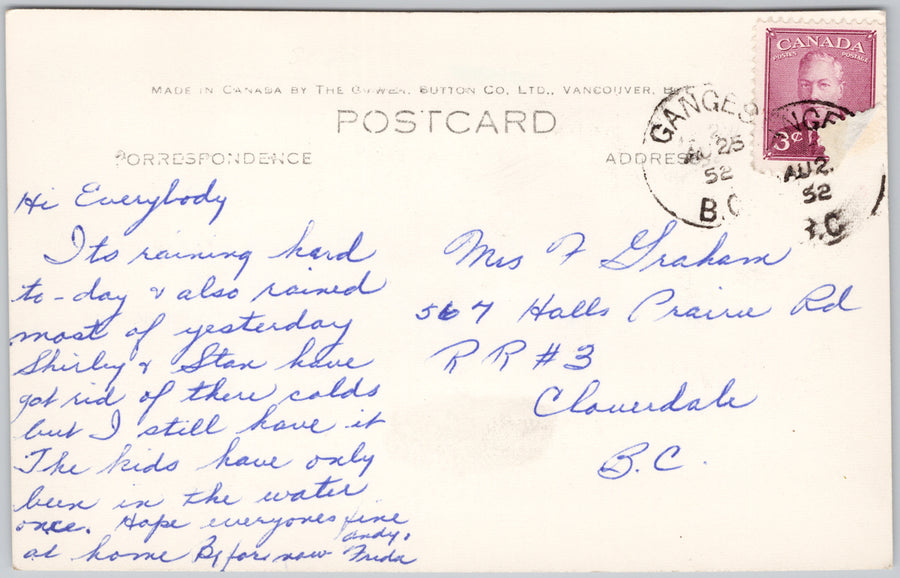 MADE IN CANADA BY THE GOWEN, SUTTON CO, LTD., VANCOUVER, B.
POSTCARD
CORRESPONDENCE
ADDRESS
CANADA
POSTES POSTAGE
3¢
GANGES
AU 25
52
B.C
ANGE
AU 2
52
B.C
Hi Everybody
Its raining hard
to-day & also rained
most of yesterday
Shirley & Stan have
got rid of there colds
but I still have it
The kids have only
been in the water
once. Hope everyones fine
at home By for now
Frida
Mrs F Graham
567 Halls Prairie Rd
R R #3
Cloverdale
B.C.